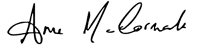 Anne McCormack